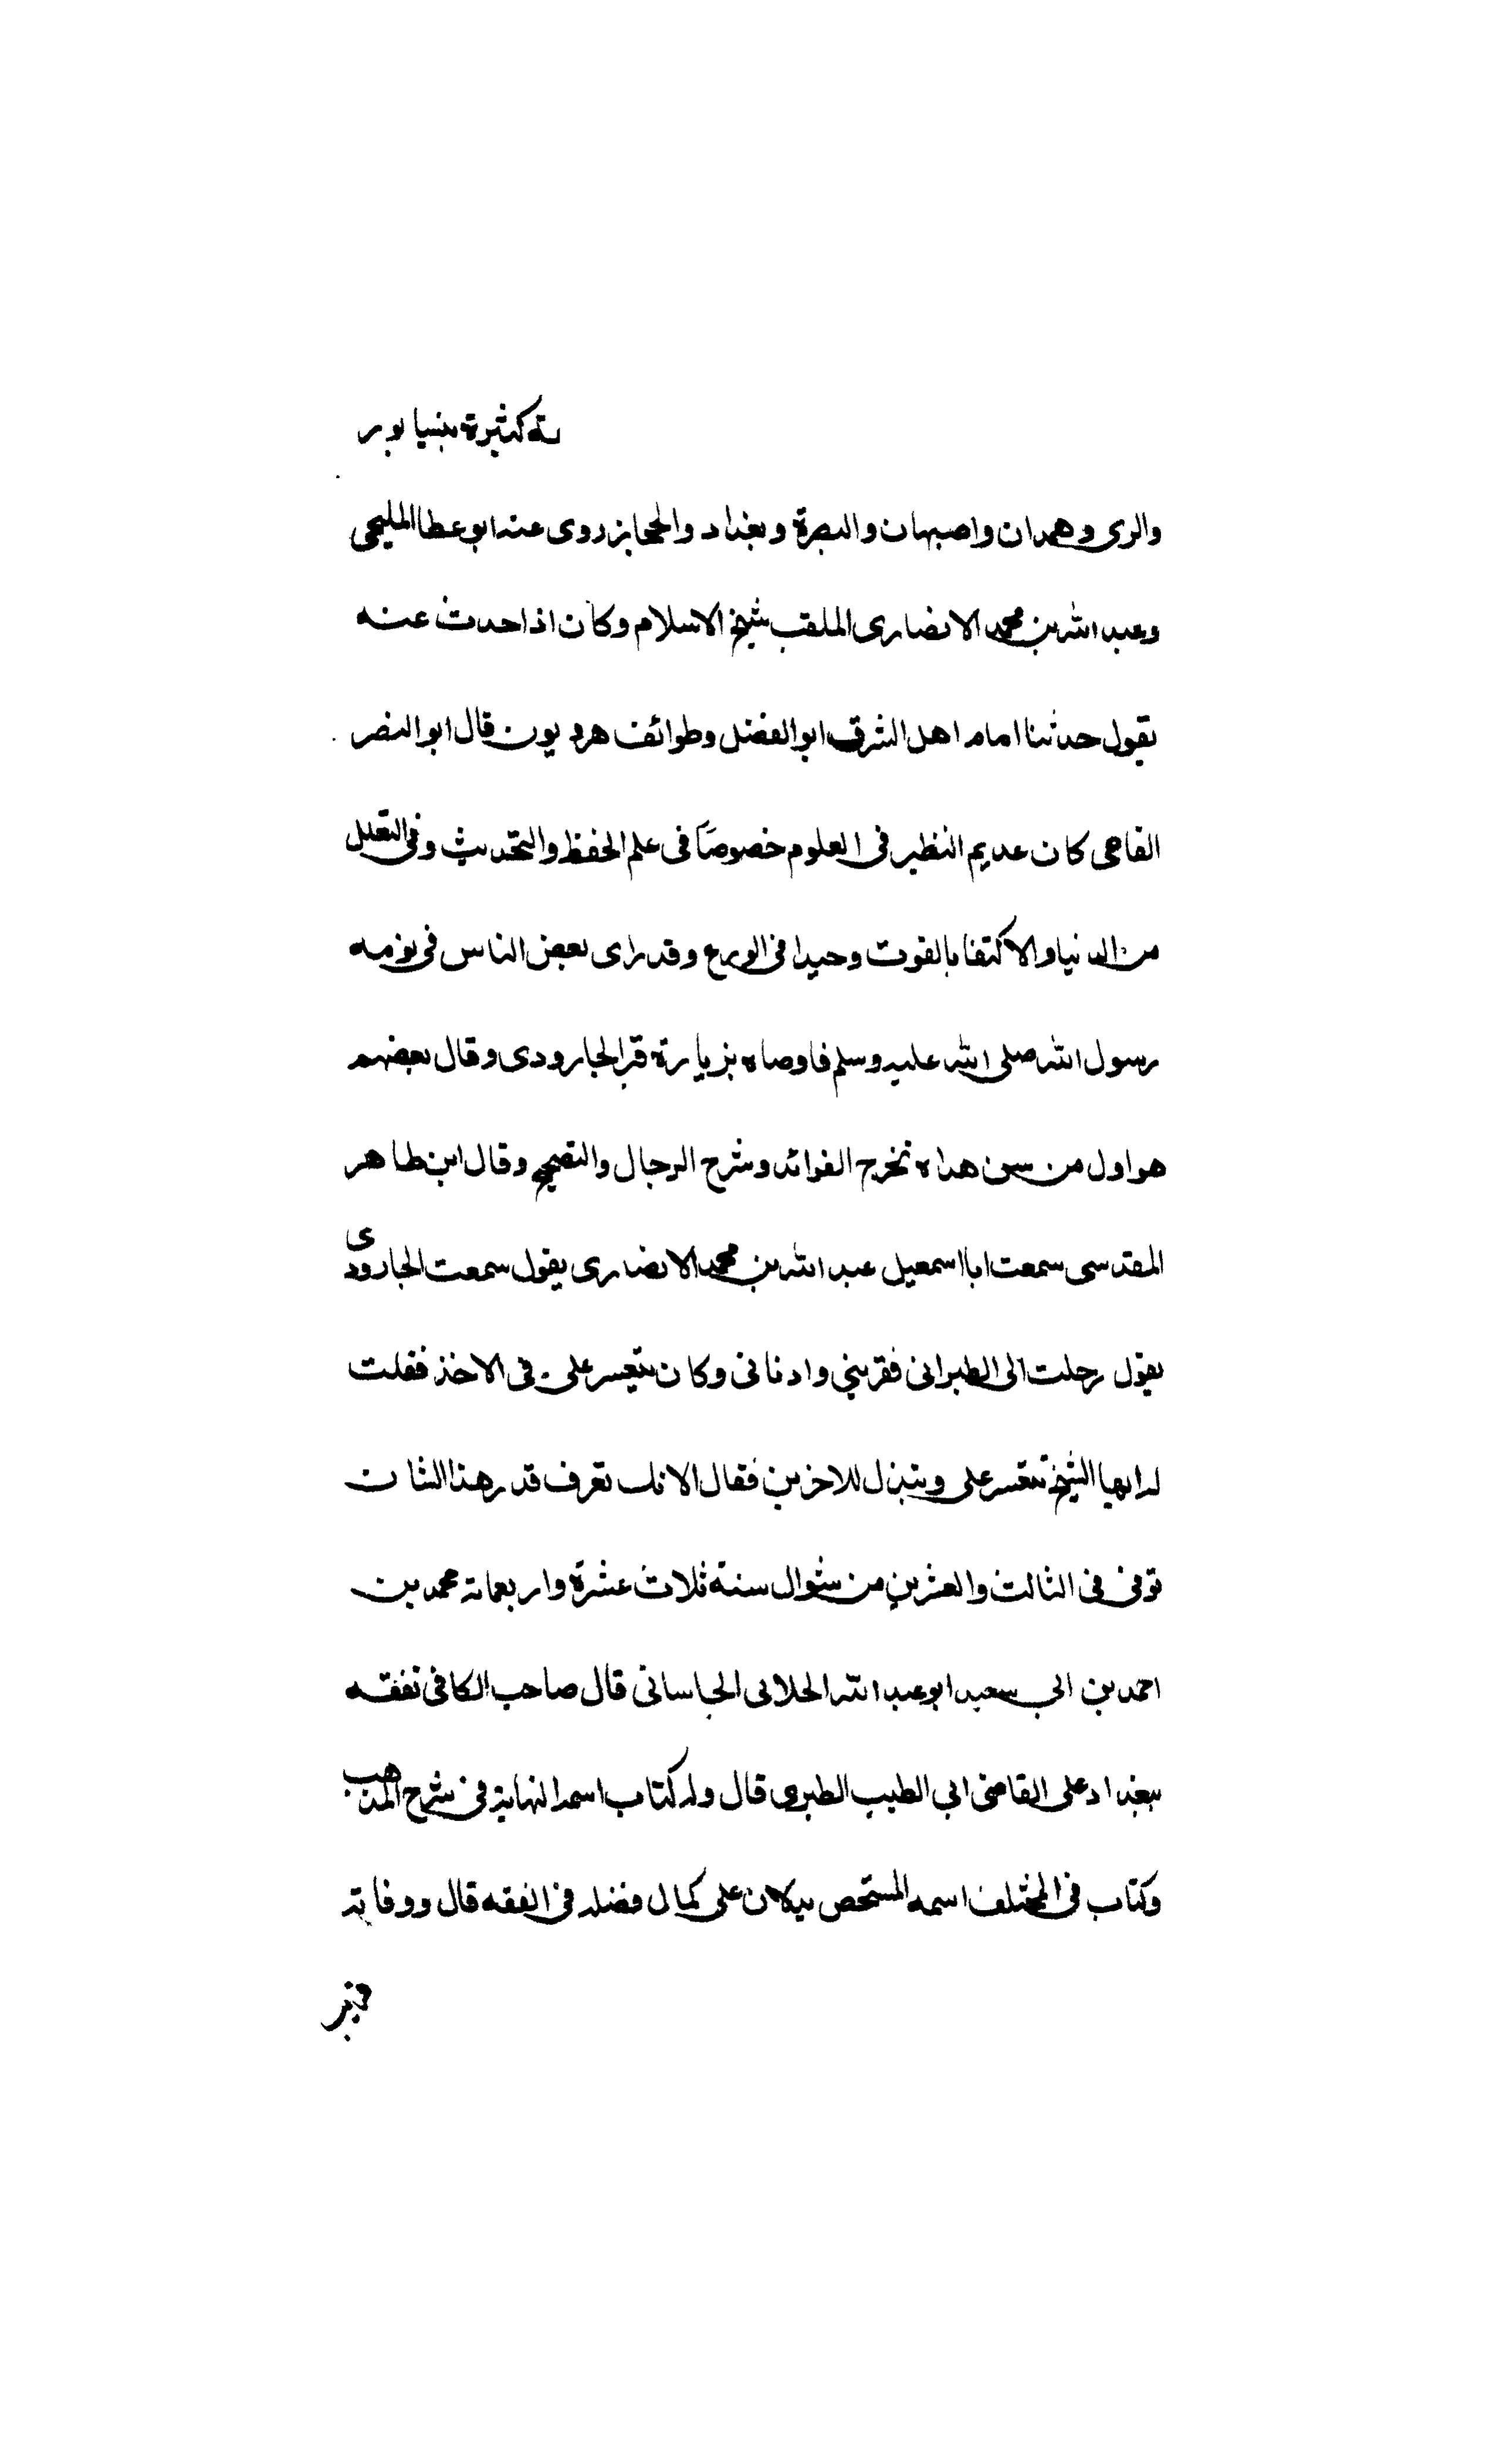 كثيرة بنسيابور
والرى وهمدان واصبهان والبصرة وبغداد والحجاز روى عنه ابو عطا المليحى
وعبد الله بن محمد الانصارى الملقب شيخ الاسلام وكان اذا حدث عنه
يقول حدثنا امام اهل الشرق ابو الفضل وطوائف هرويون قال ابو النصر
الفامى كان عديم النظير فى العلوم خصوصا فى علم الحفظ والتحديث وفى التقلل
من الدنيا والاكتفا بالقوت وحيدا فى الورع وقد راى بعض الناس فى نومه
رسول الله صلى الله عليه وسلم فاوصاه بزيارة قبر الجارودى وقال بعضهم
هو اول من سن هداه تخرج الفوائد وشرح الرجال والتصحيح وقال ابن طاهر
المقدسى سمعت ابا اسمعيل عبد الله بن محمد الانصارى يقول سمعت الجارودى
يقول رحلت الى الطبرانى فقربني وادنانى وكان يتعسر على فى الاخذ فقلت
له ايها الشيخ تتعسر على وتبذل للاخرين فقال لانك تعرف قدر هذا الشان
توفى فى الثالث والعشرين من شوال سنة ثلاث عشرة واربعماة محمد بن
احمد بن ابي سعيد ابو عبد الله الحلابى الجاسانى قال صاحب الكافى تفقه
ببغداد على القاضى ابي الطيب الطبرى قال وله كتاب اسمه النهاية فى شرح المذهب
وكتاب فى المختلف اسمه المستحص يدلان على كمال فضله فى الفقه قال ووفاته